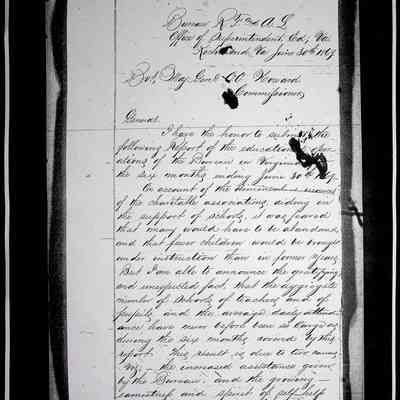 Bureau R. F. and A. L.
Office of Superintendent, Ed., Va
Richmond, Va June 30th 1869.
Bvt. Maj. Genl. O O Howard
Commissioner,
General
I have the honor to submit the
following Report of the educational
ations of the Bureau in Virginia
the six months ending June 30th 1869.
On account of the diminished
of the charitable associations, aiding in
the support of schools, it was feared
that many would have to be abandoned,
and that fewer children would be brought
under instruction than in former years.
But I am able to announce the gratifying
and unexpected fact, that the aggregate
number of schools, of teachers, and of
pupils, and the average daily attend
ance have never before been so large as
during the six months covered by this
report. This result is due to two causes,
viz. the increased assistance given
by the Bureau, and the growing
and spirit of self help